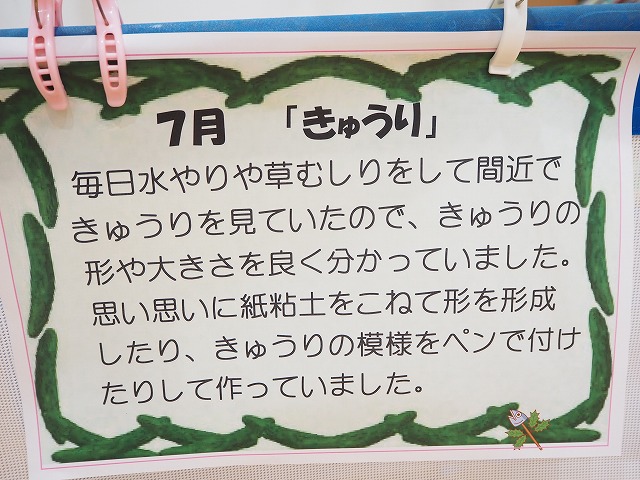 7月 「きゅうり」
毎日水やりや草むしりをして間近で
きゅうりを見ていたので、きゅうりの
形や大きさを良く分かっていました。
思い思いに紙粘土をこねて形を形成
したり、きゅうりの模様をペンで付け
たりして作っていました。